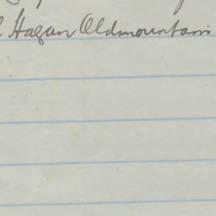 Hagan Oldmountain